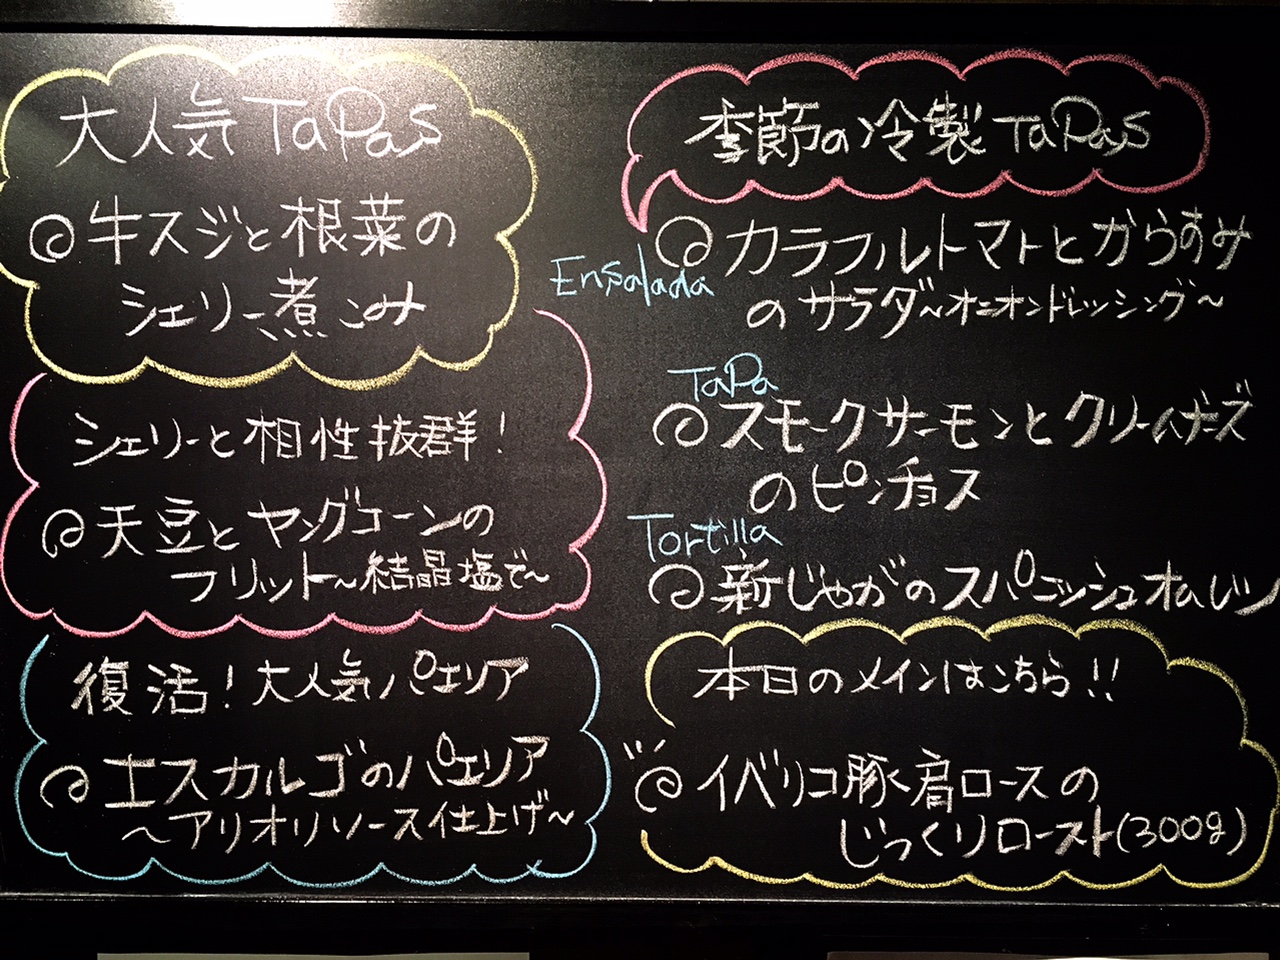 大人気TaPas
牛スジと根菜の
シェリー煮こみ
シェリーと相性抜群！
天豆とヤングコーンの
フリット～結晶塩で～
復活！大人気パエリア
エスカルゴのパエリア
～アリオリソース仕上げ～
季節の冷製TaPas
カラフルトマトとからすみ
Ensalada
のサラダ～オニオンドレッシング～
TaPa
スモークサーモンとクリームチーズ
のピンチョス
Tortilla
新じゃがのスパニッシュオムレツ
本日のメインはこちら!!
イベリコ豚肩ロースの
じっくりロースト(300g)